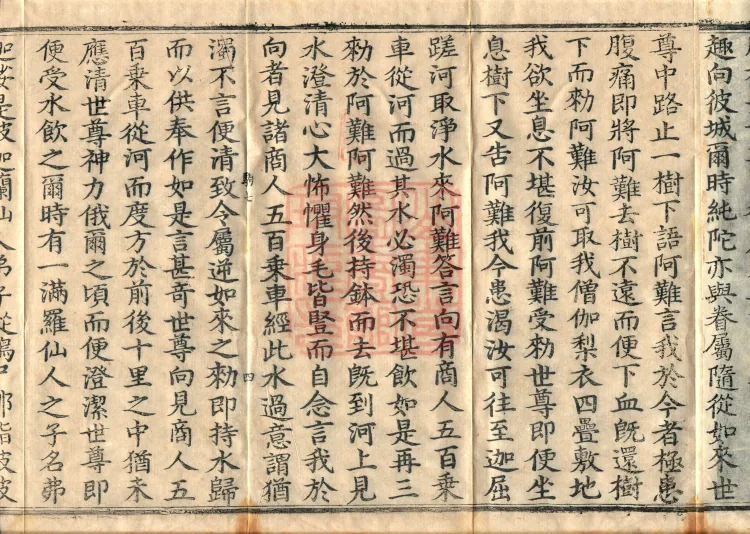 趣向彼城爾時純陀亦與眷屬隨從如來世
尊中路止一樹下語阿難言我於今者極患
腹痛即將阿難去樹不遠而便下血旣還樹
下而勑阿難汝可取我僧伽梨衣四疊敷地
我欲坐息不堪復前阿難受勑世尊即便坐
息樹下又告阿難我今患渴汝可往至迦屈
蹉河取淨水來阿難荅言向有商人五百乗
車從河而過其水必濁恐不堪飲如是再三
勑於阿難阿難然後持鉢而去旣到河上見
水澄清心大怖懼身毛皆豎而自念言我於
向者見諸商人五百乗車經此水過意謂猶
濁不言便清致令屬逆如來之勑即持水歸
而以供奉作如是言甚奇世尊向見商人五
百乗車從河而度方於前後十里之中猶未
應清世尊神力俄爾之頃而便澄潔世尊即
便受水飲之爾時有一滿羅仙人之子名弗
迦娑是彼迦蘭仙人弟子從鳩尸那詣彼波
四